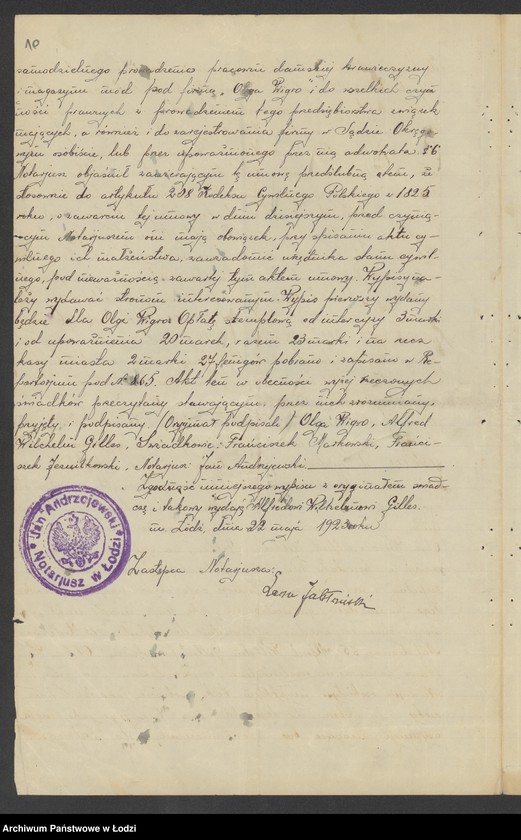 10
samodzielnego prowadzenia pracowni damskiej krawieczyzny
i magazynu mód pod firmą „Olga Wigro" i do wszelkich czyn
ności prawnych z prowadzeniem tego przedsiębiorstwa związek
mających, a również i do zarejestrowania firmy w Sądzie Okręgo
wym osobiście, lub przez upoważnionego przez nią adwokata. §6
Notarjusz objaśnił zawierającym tę umowę przedślubną stem, że
stosownie do artykułu 208 Kodeksu Cywilnego Polskiego z 1825
roku, o zawarciu tej umowy w dniu dzisiejszym, przed czynią-
cym Notarjuszem oni mają obowiązek, przy spisaniu aktu cy-
wilnego ich małżeństwa, zawiadomić urzędnika stanu cywil-
nego, pod nieważnością zawartej tym aktem umowy. Wypisy na-
leży wydawać stronom interesowanym. Wypis pierwszy wydany
będzie dla Olgi Wigro. Opłatę stemplową od interesyzy 3 marki
i od upoważnienia 20 marek, razem 23 marki i na rzecz
kasy miasta 2 marki 27 fenigów pobrano i zapisano w Re-
pertorjum pod № 665. Akt ten w obecności wyżej rzeczonych
świadków przeczytany stawającym, przez nich zrozumiany,
przyjęty i podpisany. /Oryginał podpisali/ Olga Wigro, Alfred
Wilhelm Gilles, Świadkowie: Franciszek Markowski, Francis-
szek Jezulkowski, Notarjusz Jan Andrzejewski
Zgodność niniejszego wypisu z oryginałem świad-
czę i takowy wydaję Alfredowi Wilhelmowi Gilles.
m. Łódź, dnia 22 maja 1923 roku
Zastępca Notarjusza:
Jabłoński
Jan Andrzejewski
Notarjusz w Łodzi
Archiwum Państwowe w Łodzi